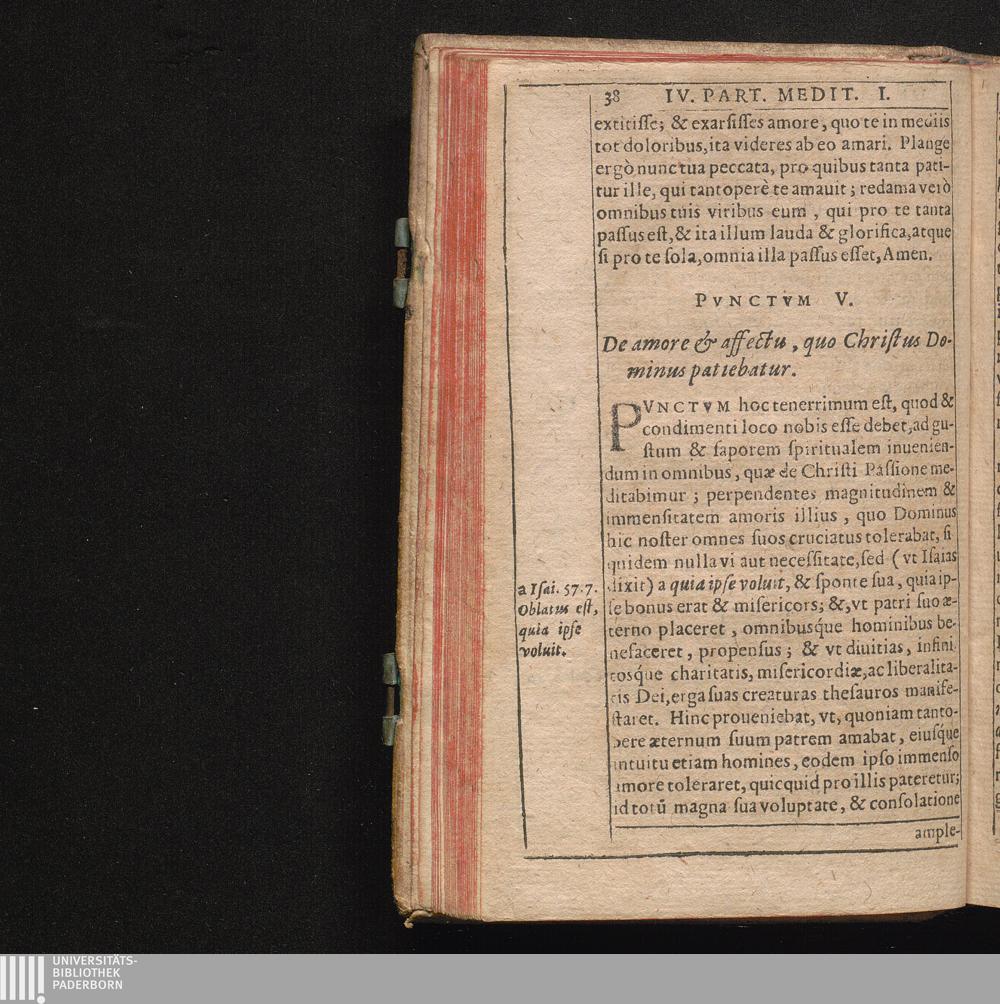 38 IV. PART. MEDIT. I.
extitiſſe; & exarſiſſes amore, quo te in mediis
tot doloribus, ita videres ab eo amari. Plange
ergò nunc tua peccata, pro quibus tanta pati-
tur ille, qui tantoperè te amauit; redama verò
omnibus tuis viribus eum, qui pro te tanta
paſſus eſt, & ita illum lauda & glorifica, atque
ſi pro te ſola, omnia illa paſſus eſſet, Amen.
PVNCTVM V.
De amore & affectu, quo Chriſtus Do-
minus patiebatur.
PVNCTVM hoc tenerrimum eſt, quod &
condimenti loco nobis eſſe debet, ad gu-
ſtum & ſaporem ſpiritualem inuenien-
dum in omnibus, quæ de Chriſti Paſſione me-
ditabimur; perpendentes magnitudinem &
immenſitatem amoris illius, quo Dominus
hic noſter omnes ſuos cruciatus tolerabat, ſi
quidem nulla vi aut neceſſitate, ſed (vt Iſaias
dixit) a quia ipſe voluit, & ſponte ſua, quia ip-
ſe bonus erat & miſericors; &, vt patri ſuo æ-
terno placeret, omnibuſq́ue hominibus be-
nefaceret, propenſus; & vt diuitias, infini
toſq́ue charitatis, miſericordiæ, ac liberalita-
tis Dei, erga ſuas creaturas theſauros manife-
ſtaret. Hinc proueniebat, vt, quoniam tanto-
pere æternum ſuum patrem amabat, eiuſq́ue
intuitu etiam homines, eodem ipſo immenſo
amore toleraret, quicquid pro illis pateretur;
id totū magna ſua voluptate, & conſolatione
ample-
a Iſai. 57.7.
Oblatus eſt,
quia ipſe
voluit.
UNIVERSITÄTS-
BIBLIOTHEK
PADERBORN